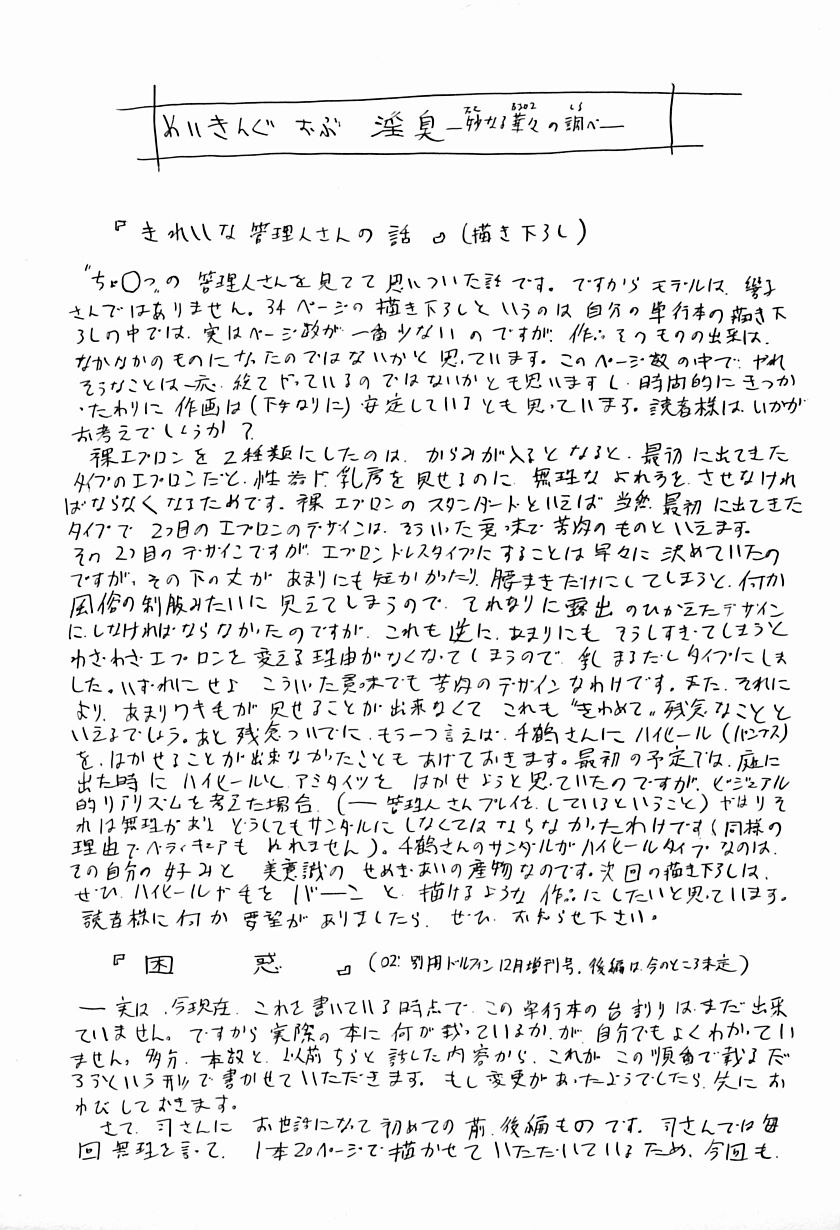 めいきんぐ おぶ 淫臭―妙なる華々の調べ―
『きれいな管理人さんの話』(描き下ろし)
"ちょ○っ"の 管理人さんを見てて思いついた話です。ですからモデルは、響子
さんではありません。34ページの描き下ろしというのは自分の単行本の描き下
ろしの中では、実はページ数が一番少ないのですが、作品そのものの出来は、
なかなかのものになったのではないかと思っています。このページ数の中で、やれ
そうなことは一応、総てやっているのではないかとも思いますし、時間的にきつか
ったわりに作画は(下手なりに)安定しているとも思っています。読者様は、いかが
お考えでしょうか?
裸エプロンを2種類にしたのは、からみが入るとなると、最初に出てきた
タイプのエプロンだと、性器や乳房を見せるのに、無理なよれ方をさせなけれ
ばならなくなるためです。裸エプロンのスタンダードといえば当然、最初に出てきた
タイプで2つ目のエプロンのデザインは、そういった意味で苦肉のものといえます。
その2つ目のデザインですが、エプロンドレスタイプにすることは早々に決めていたの
ですが、その下の丈があまりにも短かかったり、腰まきだけにしてしまうと、何か
風俗の制服みたいに見えてしまうので、それなりに露出のひかえたデザイン
にしなければならなかったのですが、これも逆に、あまりにもそうしすぎてしまうと
わざわざエプロンを変える理由がなくなってしまうので、乳まるだしタイプにしま
した。いずれにせよこういった意味でも苦肉のデザインなわけです。また、それに
より、あまりワキ毛が見せることが出来なくてこれも"きわめて"残念なことと
いえるでしょう。あと残念ついでに、もう一つ言えば、千鶴さんにハイヒール(パンプス)
を、はかせることが出来なかったこともあげておきます。最初の予定では、庭に
出た時にハイヒールと、アミタイツをはかせようと思っていたのですが、ビジュアル
的リアリズムを考えた場合、(―管理人さんプレイを、しているということ)やはりそ
れは無理があり、どうしてもサンダルにしなくてはならなかったわけです(同様の
理由でペディキュアもぬれません)。千鶴さんのサンダルがハイヒールタイプなのは、
その自分の好みと美意識のせめぎあいの産物なのです。次回の描き下ろしは、
ぜひ、ハイヒールや毛をバーーンと、描けるような作品にしたいと思っています。
読者様に何か要望がありましたら、ぜひ、お知らせ下さい。
『困惑』(02'別冊ドルフィン12月増刊号。後編は今のところ未定)
―実は、今現在、これを書いている時点で、この単行本の台割りはまだ出来
ていません。ですから実際の本に何が載っているか、が、自分でもよくわかってい
ません。多分、本数と、以前ちらと話した内容から、これがこの順番で載るだ
ろうという形で書かせていただきます。もし変更があったようでしたら、先にお
わびしておきます。
さて、司さんにお世話になって初めての前、後編ものです。司さんでは毎
回無理を言って、1本20ページで描かせていただいているため、今回も、